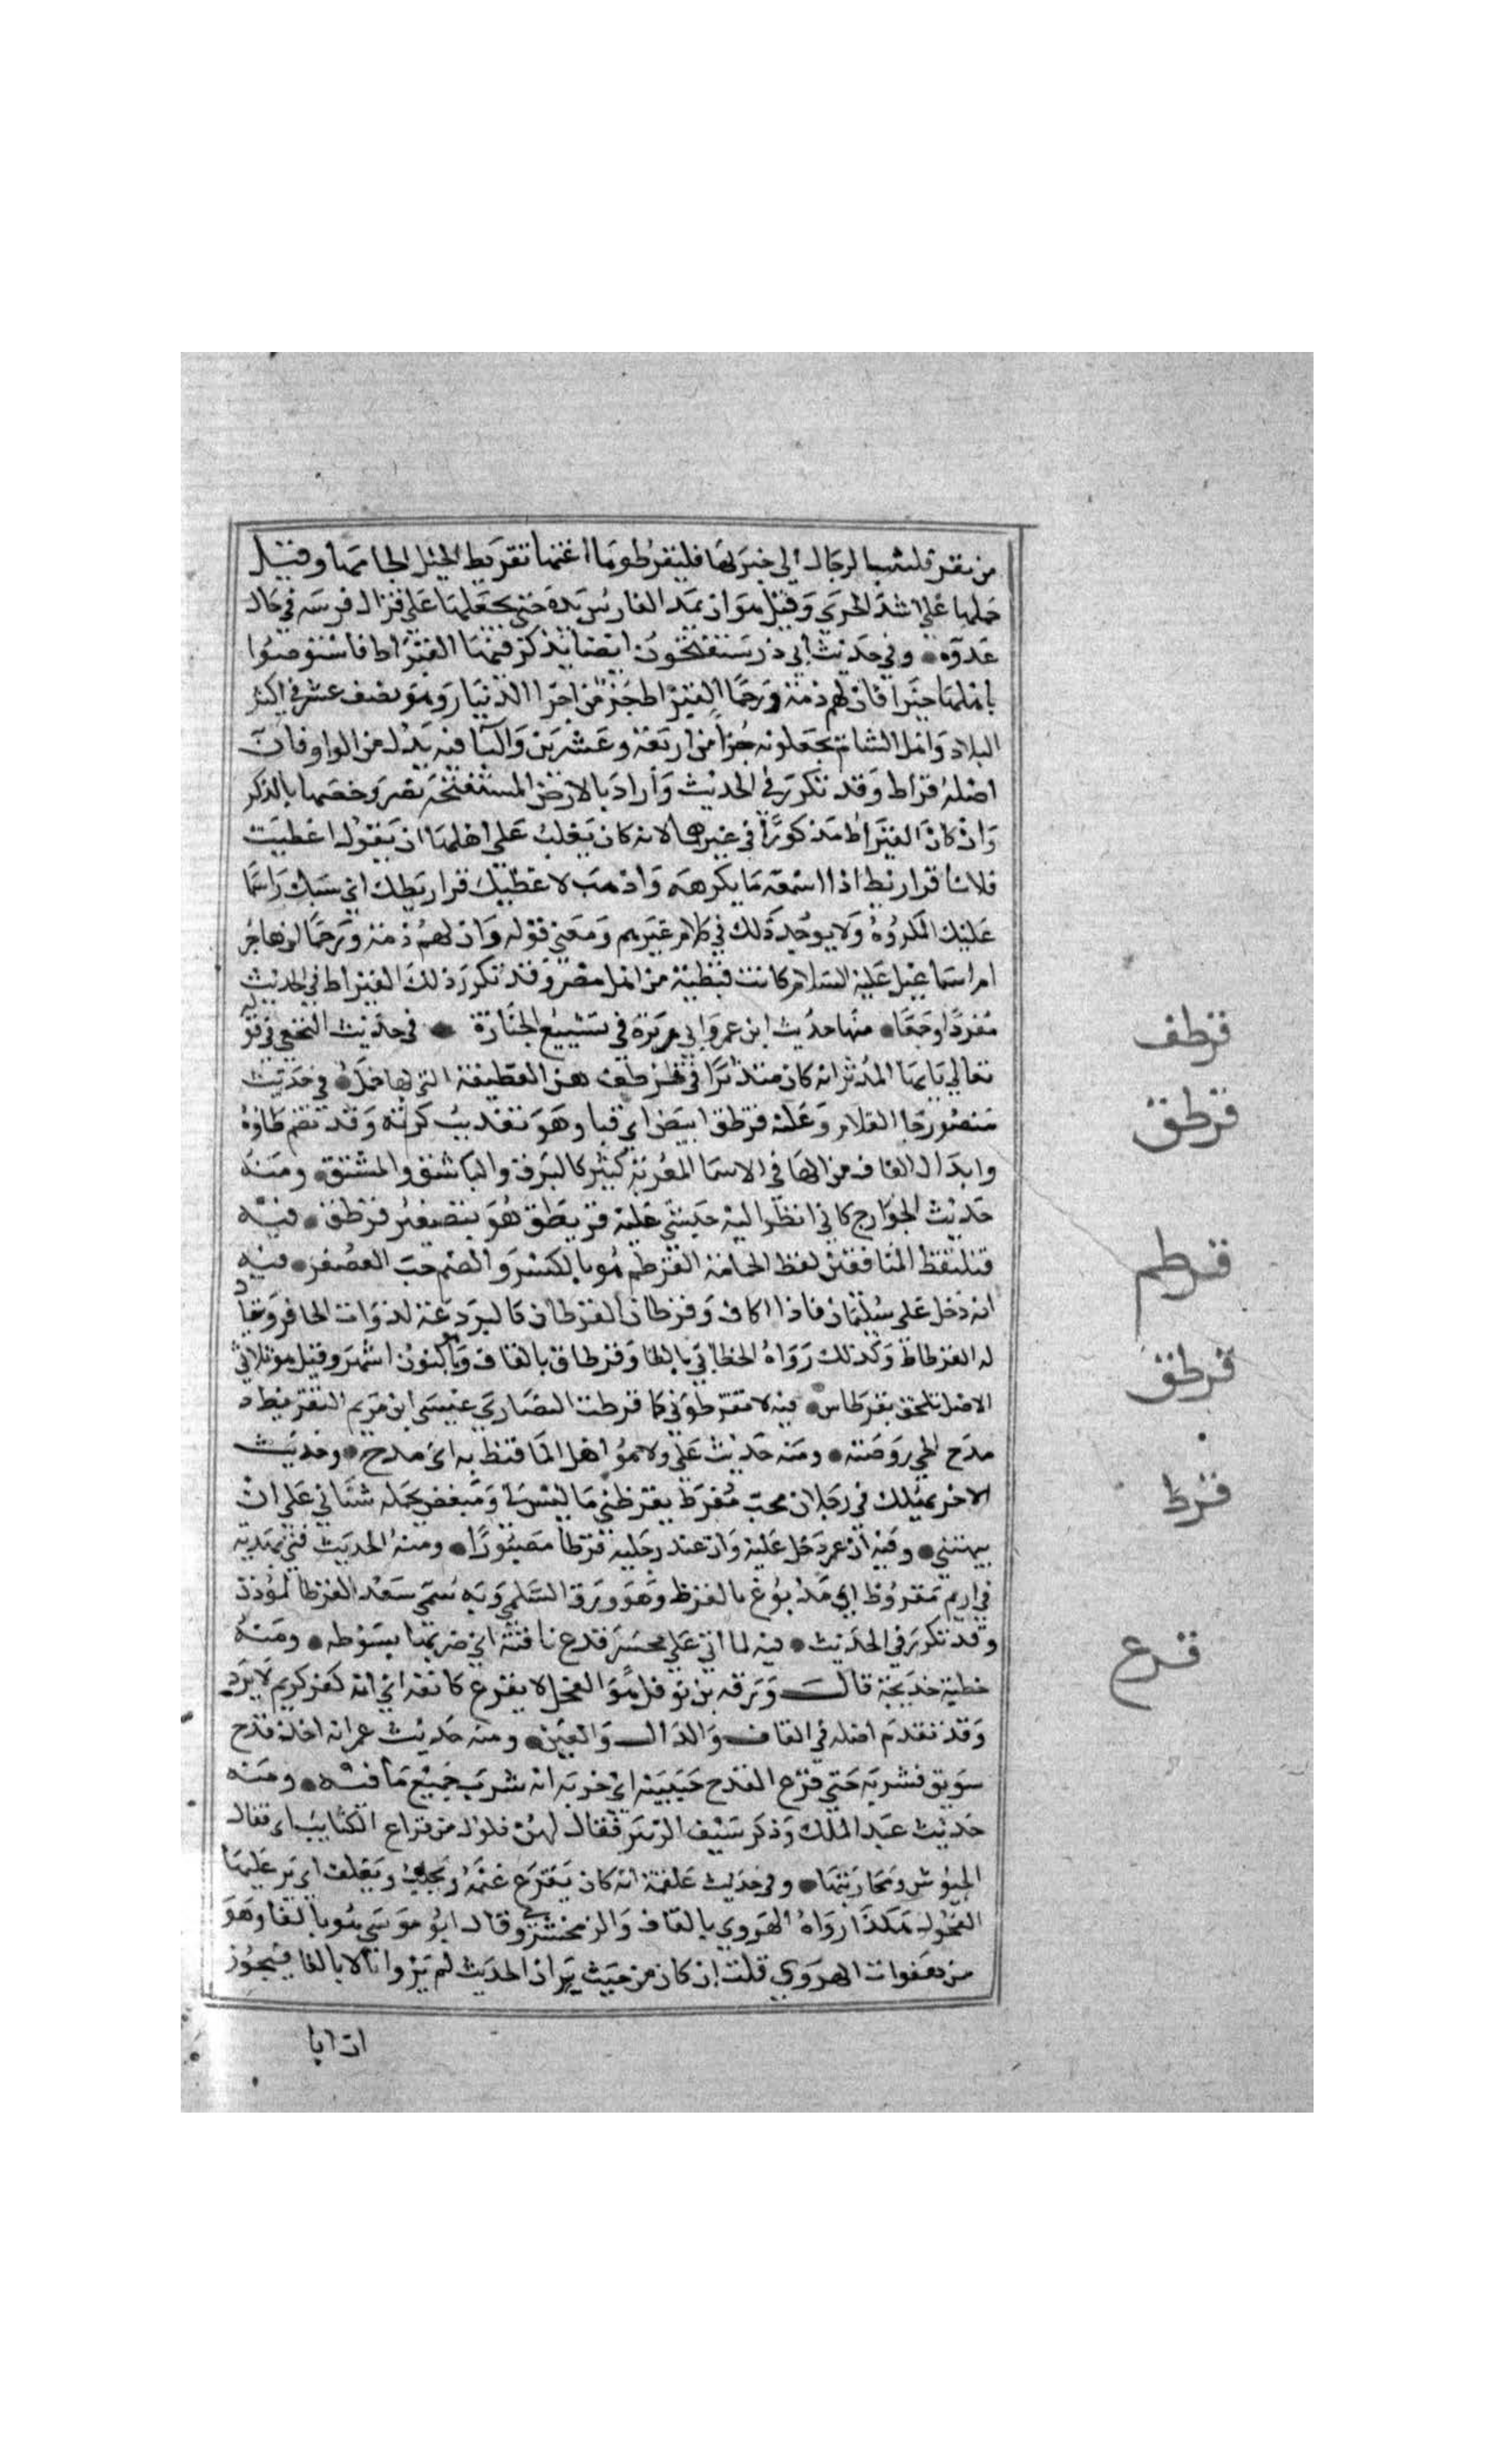 من مقر فلتثب الرجال الي خيرلها فليقرطوها اعنتها تقريط الخيل الجامها وقيل
حملها علي اشد الجري وقيل هو ان يمد الفارس يده حتي يجعلها علي قذال فرسه في حال
عدوه وفي حديث ابي ذر ستفتحون ارضا يذكر فيها القيراط فاستوصوا
باهلها خيرا فان لهم ذمة ورحما القيراط جزء من اجزا الدينار وهو نصف عشر في اكثر
البلاد واهل الشام يجعلونه جزا من اربعة وعشرين واليا فيه بدل من الراو فان
اصله قراط وقد تكرر في الحديث واراد بالارض المستفتحة مصر وخصها بالذكر
وان كان القيراط مذكورا في غيرها لانه كان يغلب علي اهلها ان يقولوا اعطيت
فلانا قراريط اذا اسمعه ما يكرهه واذهب لا عطيتك قراريطك اي سبك واسماعك
عليك المكروه ولا يوجد ذلك في كلام غيرهم ومعني قوله وان لهم ذمة ورحما ان هاجر
ام اسماعيل عليه السلام كانت قبطية من اهل مصر وقد تكرر ذلك القيراط في الحديث
مفردا وجمعا منها حديث ابن عمر وابي هريرة في تشييع الجنازة في حديث النخعي في قوله
تعالي يا يها المدثر انه كان متدثرا في قرطف هي القطيفة التي لها خمل في حديث
منصور جا الغلام وعليه قرطق ابيض اي قبا وهو تعريب كرته وقد تضم طاوه
وابدال القاف من الها في الاسما المعربة كثير كالبرق والباشق والمستق ومنه
حديث الخوارج كاني انظر اليه حبشي عليه قريطق هو تصغير قرطق فيه
فتلتقط المنافقين لقط الحمامة القرطم هو بالكسر والضم حب العصفر فيه
انه دخل علي سليمان فاذا اكاف وقرطان القرطان كالبردعة لذوات الحافر ويقال
له القرطاط وكذلك رواه الخطابي بالطا وقرطاق بالقاف وبالنون اشهر وقيل هو ثلاثي
الاصل ملحق بقرطاس فيه لا تقرظوني كما قرظت النصاري عيسي ابن مريم التقريظ
مدح الحي ووصفه ومنه حديث علي ولا هو اهل لما قرظ به اي مدح وحديث
الاخر يهلك في رجلان محب مفرط يقرظني بما ليس في ومبغض يحمله شنآني علي ان
يبهتني وفيه ان عمر دخل عليه وان عند رجليه قرظا مصبورا ومنه الحديث اتي بهدية
في اديم مقروظ اي مدبوغ بالقرظ وهو ورق السلم وبه سمي سعد القرظ المؤذن
وقد تكرر في الحديث فيه لما اتي علي محسر قرع ناقته اي ضربها بسوطه ومنه
خطبة خديجة قال ورقة بن نوفل هو الفحل لا يقرع انفه اي انه كفو كريم لا يرد
وقد تقدم اصله في القاف والدال والعين ومنه حديث عمر انه اخذ قدح
سويق فشربه حتي قرع القدح جبينه اي ضربه انه شرب جميع ما فيه ومنه
حديث عبد الملك وذكر سيف الزبير فقال بهن فلول من قراع الكتايب اي قتال
الجيوش ومحاربتها وفي حديث علقمة انه كان يقرع غنمه ويحلب ويعلف اي ينزي عليها
الفحول هكذا رواه الهروي بالقاف والزمخشري وقال ابو موسي هو بالفا وهو
من هفوات الهروي قلت ان كان من حيث ان الحديث لم يرو الا بالفا فيجوز
ان ابا
قرطف
قرطق
قرطم
قرطق
قرظ
قرع